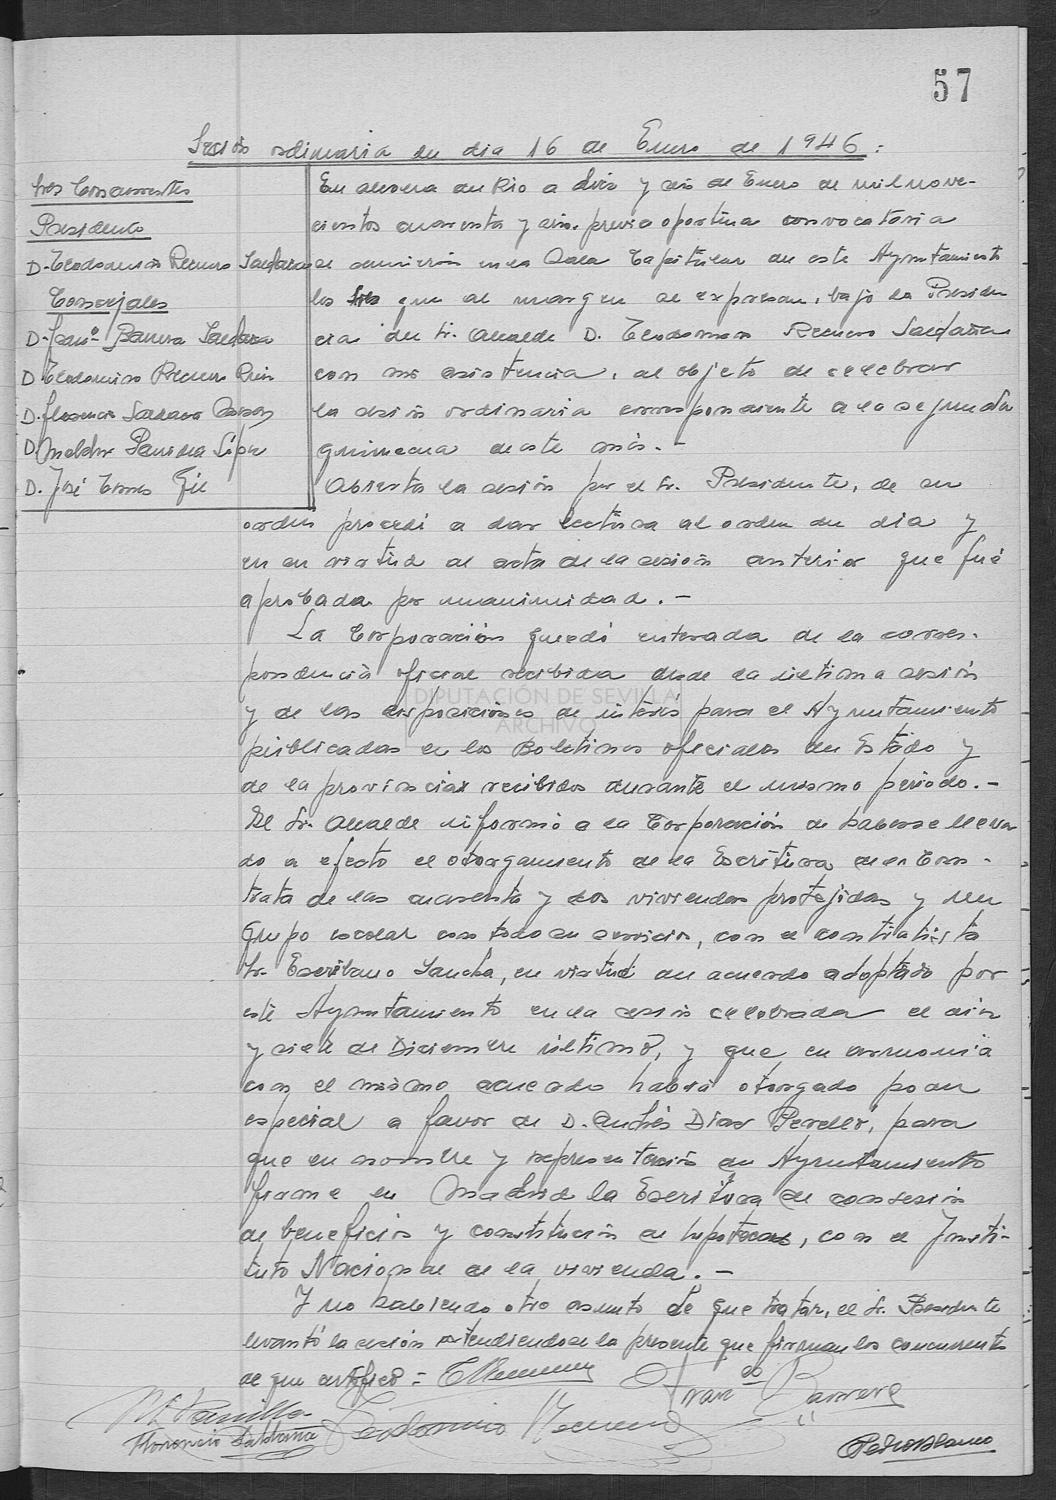 57
Sesión ordinaria del dia 16 de Enero de 1946:
Sres Concurrentes
Presidente
D. Teodomiro Recuero Saldaña
Concejales
D. Franº Barrera Saldaña
D Teodomiro Recuero
D. Florencio Saldaña
D Melchor Parrilla López
D. José Torres Gil
En del Rio a diez y seis de Enero de mil nove-
cientos cuarenta y seis, previa oportuna convocatoria
se reunieron en la Sala Capitular de este Ayuntamiento
los Sres que al margen se expresan, bajo la Presiden
cia del Sr. Alcalde D. Teodomiro Recuero Saldaña
con mi asistencia, al objeto de celebrar
la sesión ordinaria correspondiente a la segunda
quincena de este mes.-
Abierta la sesión por el Sr. Presidente, de su
orden procedi a dar lectura al orden del dia y
en su virtud al acta de la sesión anterior que fué
aprobada por unanimidad.-
La Corporación quedó enterada de la corres-
pondencia oficial recibida desde la última sesión
y de las disposiciones de interés para el Ayuntamiento
publicadas en los Boletines oficiales del Estado y
de la provincia recibidos durante el mismo periodo.-
El Sr. Alcalde informó a la Corporación de haberse lleva
do a efecto el otorgamiento de la Escritura de la Con-
trata de las cuarenta y dos viviendas protejidas y un
Grupo escolar con todo su servicio, con el contratista
Sr. Escribano Sancha, en virtud del acuerdo adoptado por
este Ayuntamiento en la sesión celebrada el diez
y siete de Diciembre último, y que en armonia
con el mismo acuerdo habia otorgado poder
especial a favor de D. Andrés Diaz , para
que en nombre y representación del Ayuntamiento
firme en Madrid la Escritura de concesión
de beneficios y constitución de hipotecas, con el Insti-
tuto Nacional de la vivienda.-
Y no habiendo otro asunto de que tratar, el Sr. Presidente
levantó la sesión extendiendose la presente que firman los concurrentes
de que certifico =
Franco Barrera
M Parrilla
Teodomiro Recuero
Florencio Saldaña
Pedro Blanco
DIPUTACIÓN DE SEVILLA
ARCHIVO